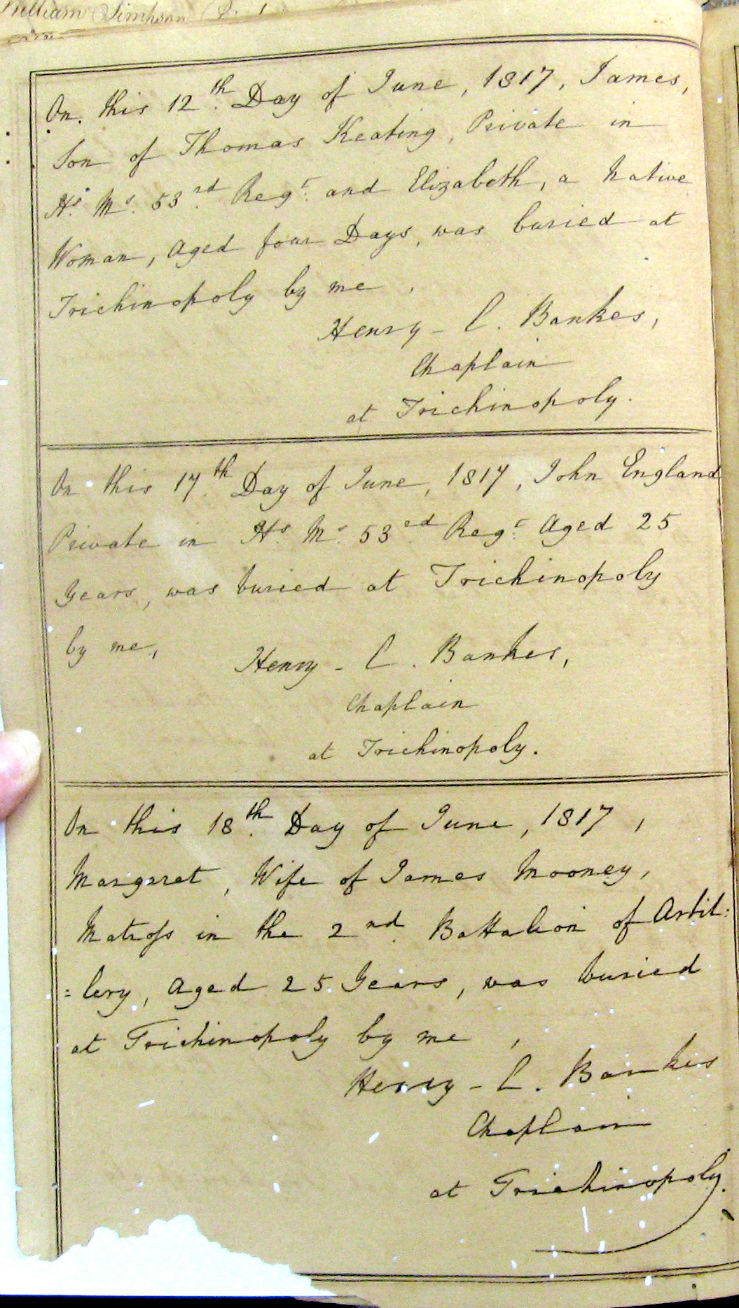 William Simpson
On this 12th Day of June, 1817, James,
Son of Thomas Keating, Private in
Hs Ms 53rd Regt and Elizabeth, a Native
Woman, aged four Days, was buried at
Trichinopoly by me,
Henry - C. Bankes,
Chaplain
at Trichinopoly.
On this 17th Day of June, 1817, John England
Private in Hs Ms 53rd Regt Aged 25
Years, was buried at Trichinopoly
by me,
Henry - C. Bankes,
Chaplain
at Trichinopoly.
On this 18th Day of June, 1817,
Margaret, Wife of James Mooney,
Matross in the 2nd Battalion of Artil:
:lery, aged 25 Years, was buried
at Trichinopoly by me,
Henry - C. Bankes
Chaplain
at Trichinopoly.